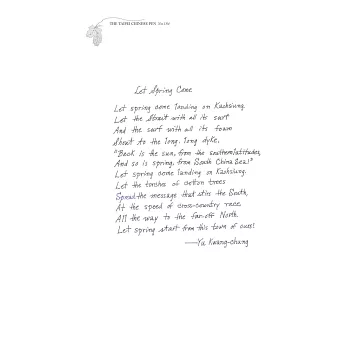 THE TAIPEI CHINESE PEN
Let Spring Come
Let spring come landing on Kaohsiung.
Let the Strait with all its surf
And the surf with all its foam
Shout to the long, long dyke,
"Back is the sun, from the southern latitudes,
And so is spring, from South China Sea!"
Let spring come landing on Kaohsiung.
Let the torches of cotton trees
Spread the message that stirs the South,
At the speed of cross-country race
All the way to the far-off North.
Let spring start from this town of ours!
—Yu Kwang-chung